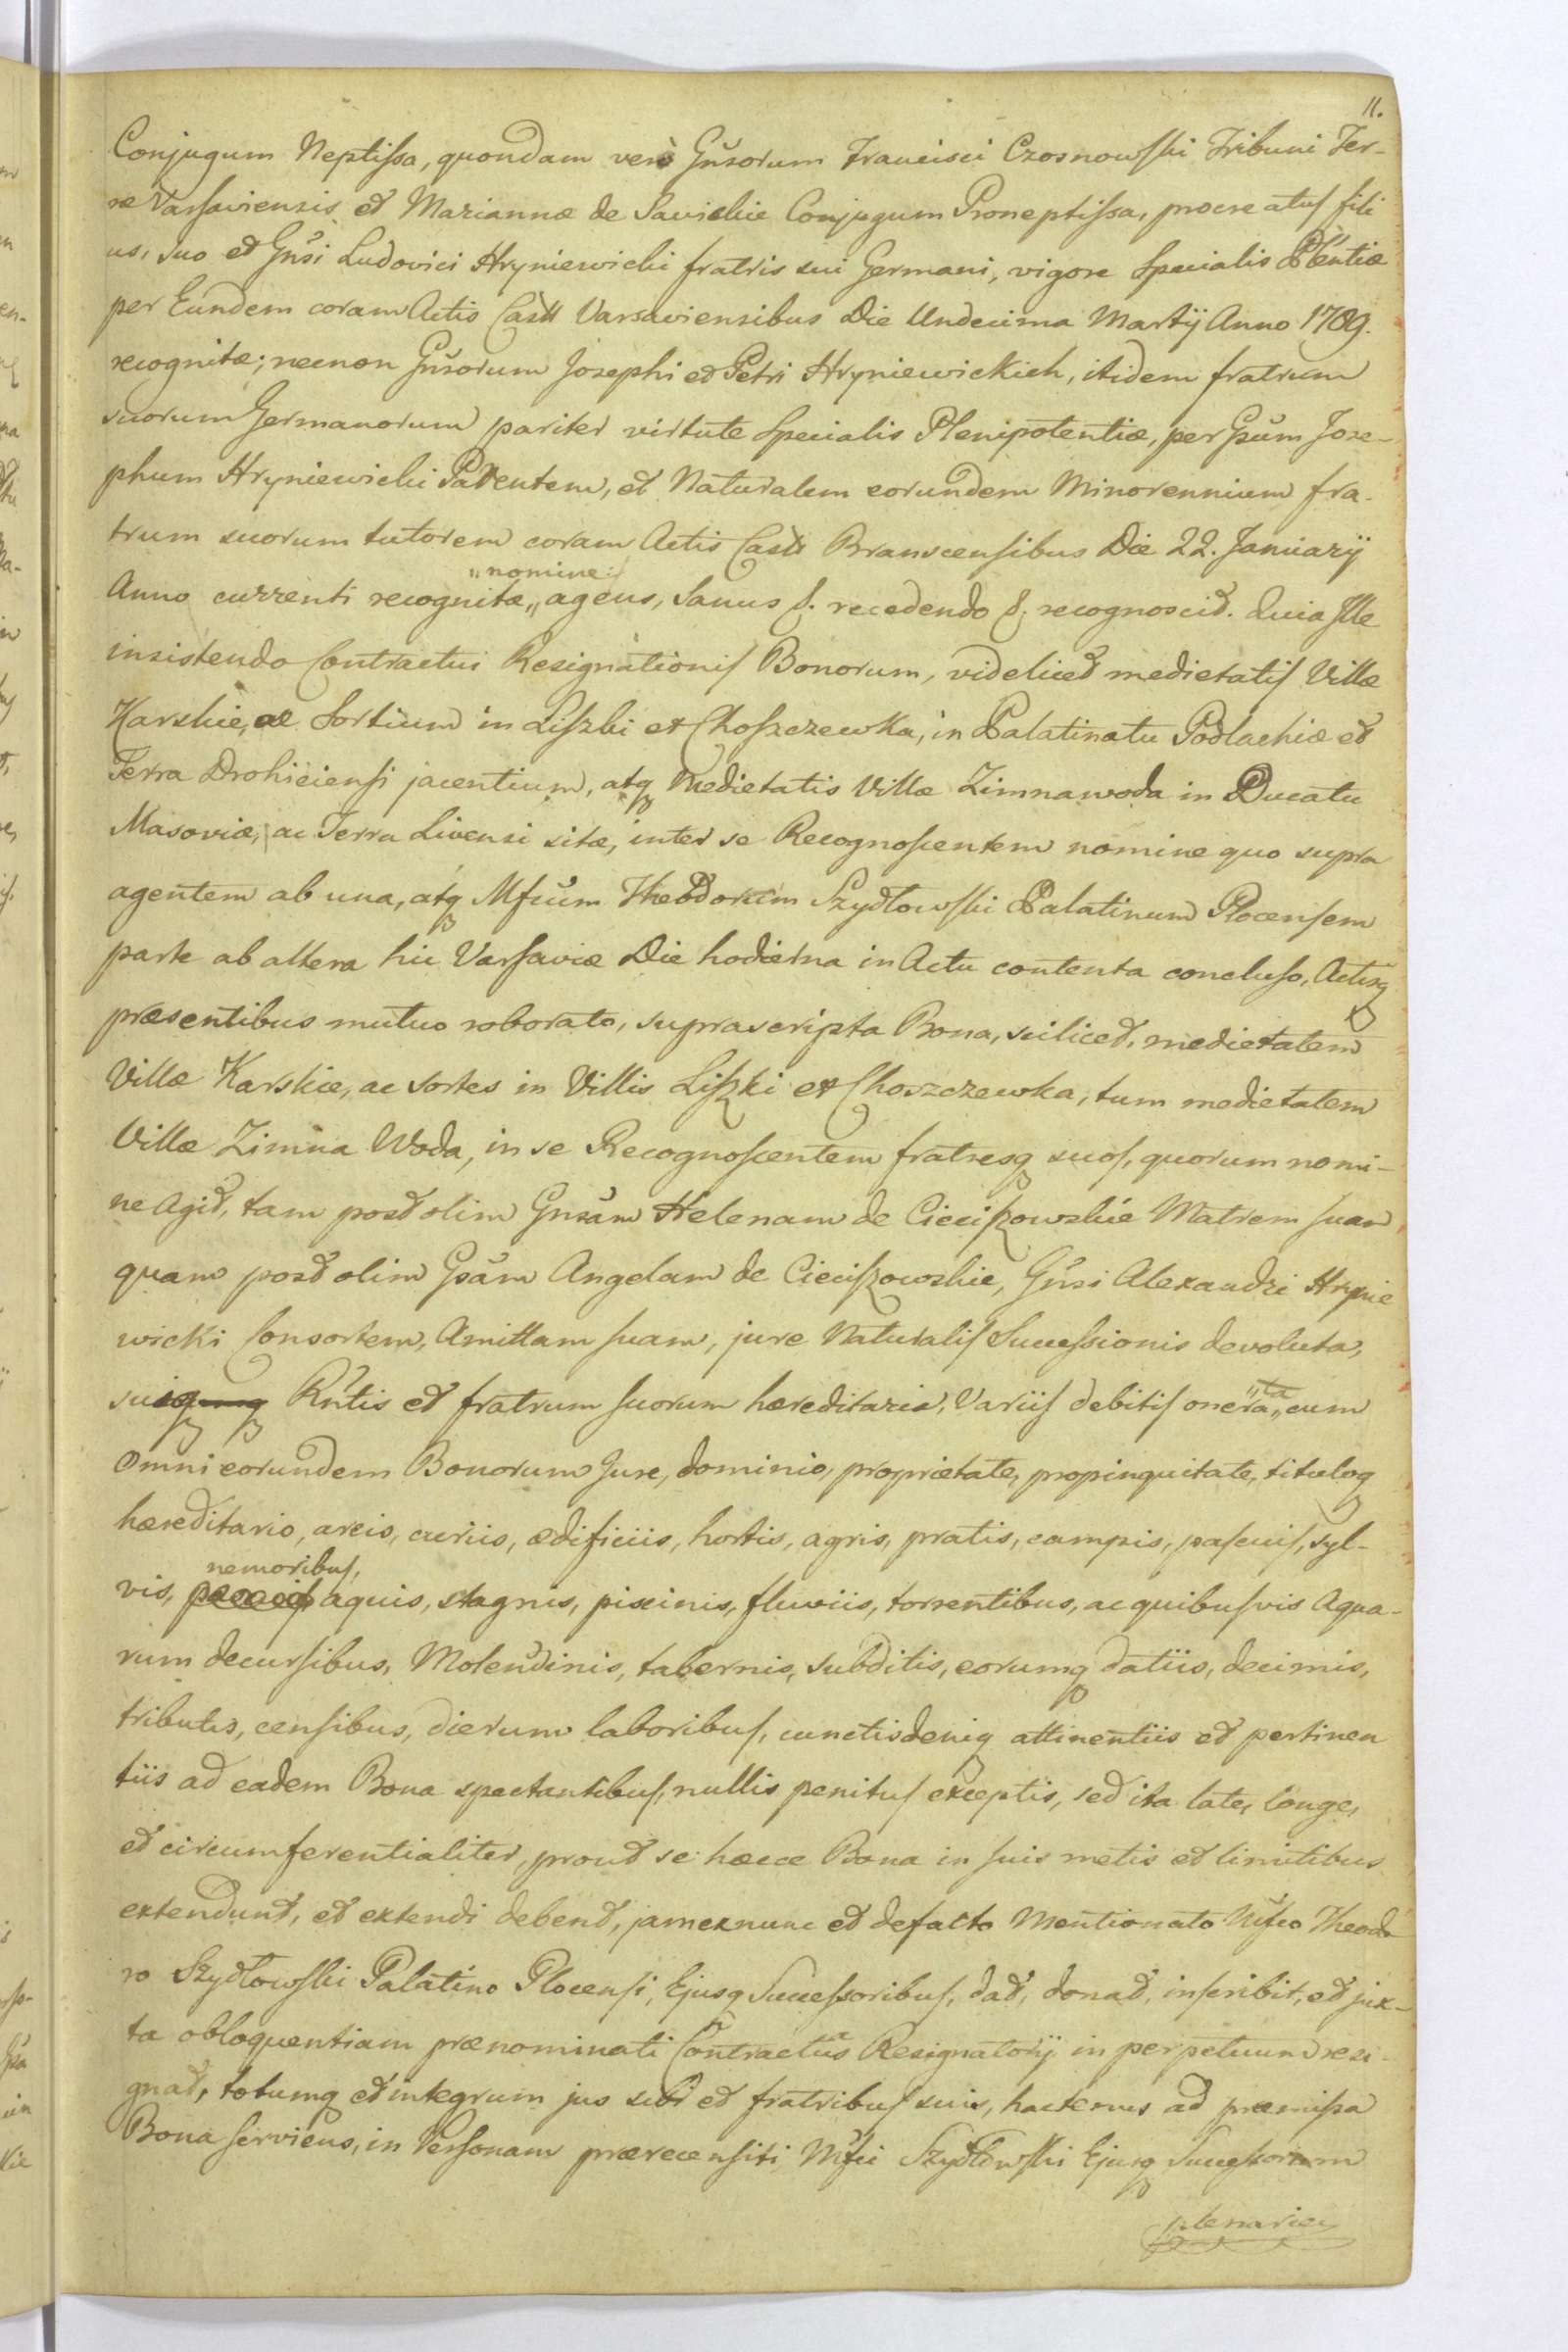 11.
Conjugum Neptissa, quondam verò Gnsorum Francisci Czosnowski Tribuni Ter-
ræ Varsaviensis et Mariannæ de Savickie Conjugum Proneptissa, procreatus fili
us, suo et Gnsi Ludovici Hryniewicki fratris sui Germani, vigore Specialis Plentiæ
per Eundem coram Actis Castr Varsaviensibus Die Undecima Martÿ Anno 1789.
recognitæ; necnon Gnsorum Josephi et Petri Hryniewickich, itidem fratrum
suorum Germanorum pariter virtute Specialis Plenipotentiæ, per Gsum Jose-
phum Hryniewicki Parentem, et Naturalem eorundem Minorennium fra-
trum suorum tutorem coram Actis Castr Branscensibus Die 22. Januarÿ
„nomine
Anno currenti recognitæ„ agens, Sanus &. recedendo &. recognoscit. Quia Ille
insistendo Contractui Resignationis Bonorum, videlicet medietatis Villæ
Karskie, ac Sortium in Liszki et Choszczewka, in Palatinatu Podlachiæ et
Terra Drohiciensi jacentium, atq Medietatis Villæ Zimnawoda in Ducatu
Masoviæ, ac Terra Livensi sitæ, inter se Recognoscentem nomine quo supra
agentem ab una, atq Mfcum Theodorum Szydłowski Palatinum Plocensem
parte ab altera hic Varsaviæ Die hodierna in Actu contenta concluso, Actisq
præsentibus mutuo roborato, suprascripta Bona, scilicet, medietatem
Villæ Karskie, ac sortes in Villis Liszki et Choszczewka, tum medietatem
Villæ Zimna Woda, in se Recognoscentem fratresq suos, quorum nomi-
ne agit, tam post olim Gnsam Helenam de Cieciszowskie Matrem suam
quam post olim Gsam Angelam de Cieciszowskie, Gnsi Alexandri Hrynie
wicki Consortem, Amittam suam, jure Naturalis Successionis devoluta,
suiq Rntis et fratrum suorum hæreditaria, Variis debitis onera„ta„ cum
omni eorundem Bonorum Jure, dominio, proprietate, propinquitate, tituloq
hæreditario, areis, curiis, ædificiis, hortis, agris, pratis, campis, pascuis, syl-
nemoribus,
vis, aquis, stagnis, piscinis, fluviis, torrentibus, ac quibusvis Aqua-
rum decursibus, Molendinis, tabernis, subditis, eorumq datiis, decimis,
tributis, censibus, dierum laboribus, cunctisdeniq attinentiis et pertinen
tiis ad eadem Bona spectantibus, nullis penitus exceptis, sed ita late, longe,
et circumferentialiter, prout se hæcce Bona in suis metis et limitibus
extendunt, et extendi debent, jamexnunc et defacto Mentionato Mfco Theodo
ro Szydłowski Palatino Plocensi, Ejusq Successoribus, dat, donat, inscribit, et jux-
ta obloquentiam prænominati Contractus Resignatorÿ in perpetuum resi-
gnat, totumq et integrum jus sibi et fratribus suis, hactenus ad præmissa
Bona serviens, in Personam prærecensiti Mfci Szydłowski Ejusq Successorum
plenarie